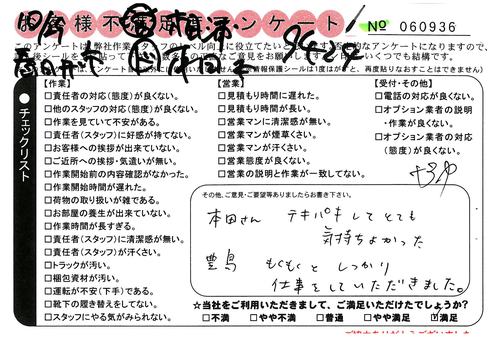 お客様不満足度アンケート
No 060936
【作業】
□責任者の対応(態度)が良くない。
□他のスタッフの対応(態度)が良くない。
□作業を見ていて不安がある。
□責任者(スタッフ)に好感が持てない。
□お客様への挨拶が出来ていない。
□ご近所への挨拶・気遣いが無い。
□作業開始前の内容確認がなかった。
□作業開始時間が遅れた。
□荷物の取り扱いが雑である。
□お部屋の養生が出来ていない。
□作業時間が長すぎる。
□責任者(スタッフ)に清潔感が無い。
□責任者(スタッフ)が汗くさい。
□トラックが汚い。
□梱包資材が汚い。
□運転が不安(下手)である。
□靴下の履き替えをしてない。
□スタッフにやる気がみられない。
【営業】
□見積もり時間に遅れた。
□見積もり時間が長い。
□営業マンに清潔感が無い。
□営業マンが煙草くさい。
□営業マンが汗くさい。
□営業態度が良くない。
□営業の説明と作業が一致してない。
【受付・その他】
□電話の対応が良くない。
□オプション業者の説明
・作業が良くない。
□オプション業者の対応
(態度)が良くない。
チェックリスト
その他、ご意見・ご要望等ありましたらお書き下さい。
本田さん テキパキしてとても
気持ちよかった
豊島 もくもくとしっかり
仕事をしていただきました。
☆当社をご利用いただきまして、ご満足いただけたでしょうか?
□不満 □やや不満 □普通 □やや満足 ☑満足